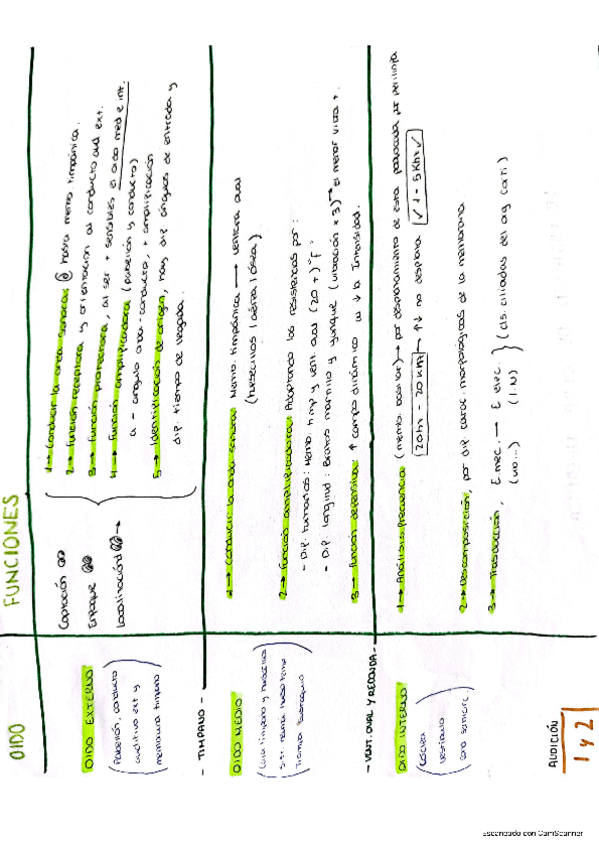 OIDO
FUNCIONES
OIDO EXTERNO
(Pabellón, conducto
auditivo ext y
membrana timpano)
Captación
Enfoque
Localización →
1→ Conducir la onda sonora: @ hasta memb. timpánica.
2→ Función receptora y orientación al conducto aud ext.
3→ Función protectora, al ser + sensibles el oido med e int.
4→ Función amplificadora (pabellón y conducto)
a - angulo onda-conducto, + amplificación
5→ Identificación de origen, hay dif ángulos de entrada y
dif. tiempo de llegada.
- TIMPANO -
OIDO MEDIO
(Caja timpano y huesecillos
sist. neum. hueso temp
Trompa Eustaquio)
1→ Conducir la onda sonora: Memb. timpánica → ventana oval
(huesecillos / aérea / ósea)
2→ Función amplificadora: Adaptando las resistencias por:
- Dif. tamaños: Memb. timp y vent. oval (20+) "F"
- Dif. longitud: Brazos martillo y yunque (vibración x3) → El menor vibra +.
3→ Función defensiva: ↑ campo dinámico w ↓ la Intensidad.
- VENT. OVAL Y REDONDA -
OIDO INTERNO
(Cóclea
vestíbulo
cana semicirc)
1→ Análisis frecuencia (memb. basilar) → por desplazamiento de esta provocada por perilinfa
20hz - 20 KHz → ↑↓ no desplaza ✓ 1 - 5 KHz ✓
2→ Descomposición, por dif carac. morfológicas de la membrana
3→ Trasducción, E.mec. → E elec. } (cls. ciliadas del org corti)
(vib...) (I.N)
AUDICIÓN
1 y 2
Escaneado con CamScanner